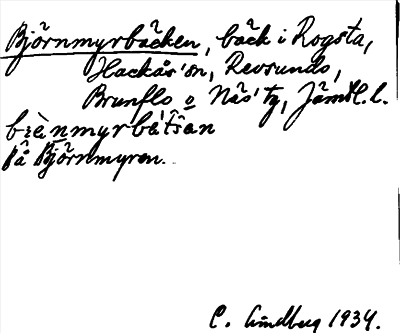 Björnmyrbäcken, bäck i Rogsta,
Hackås' sn, Revsunds,
Brunflo o Näs' tg, Jämtl. l.
på Björnmyren.
C. Lindberg 1934.